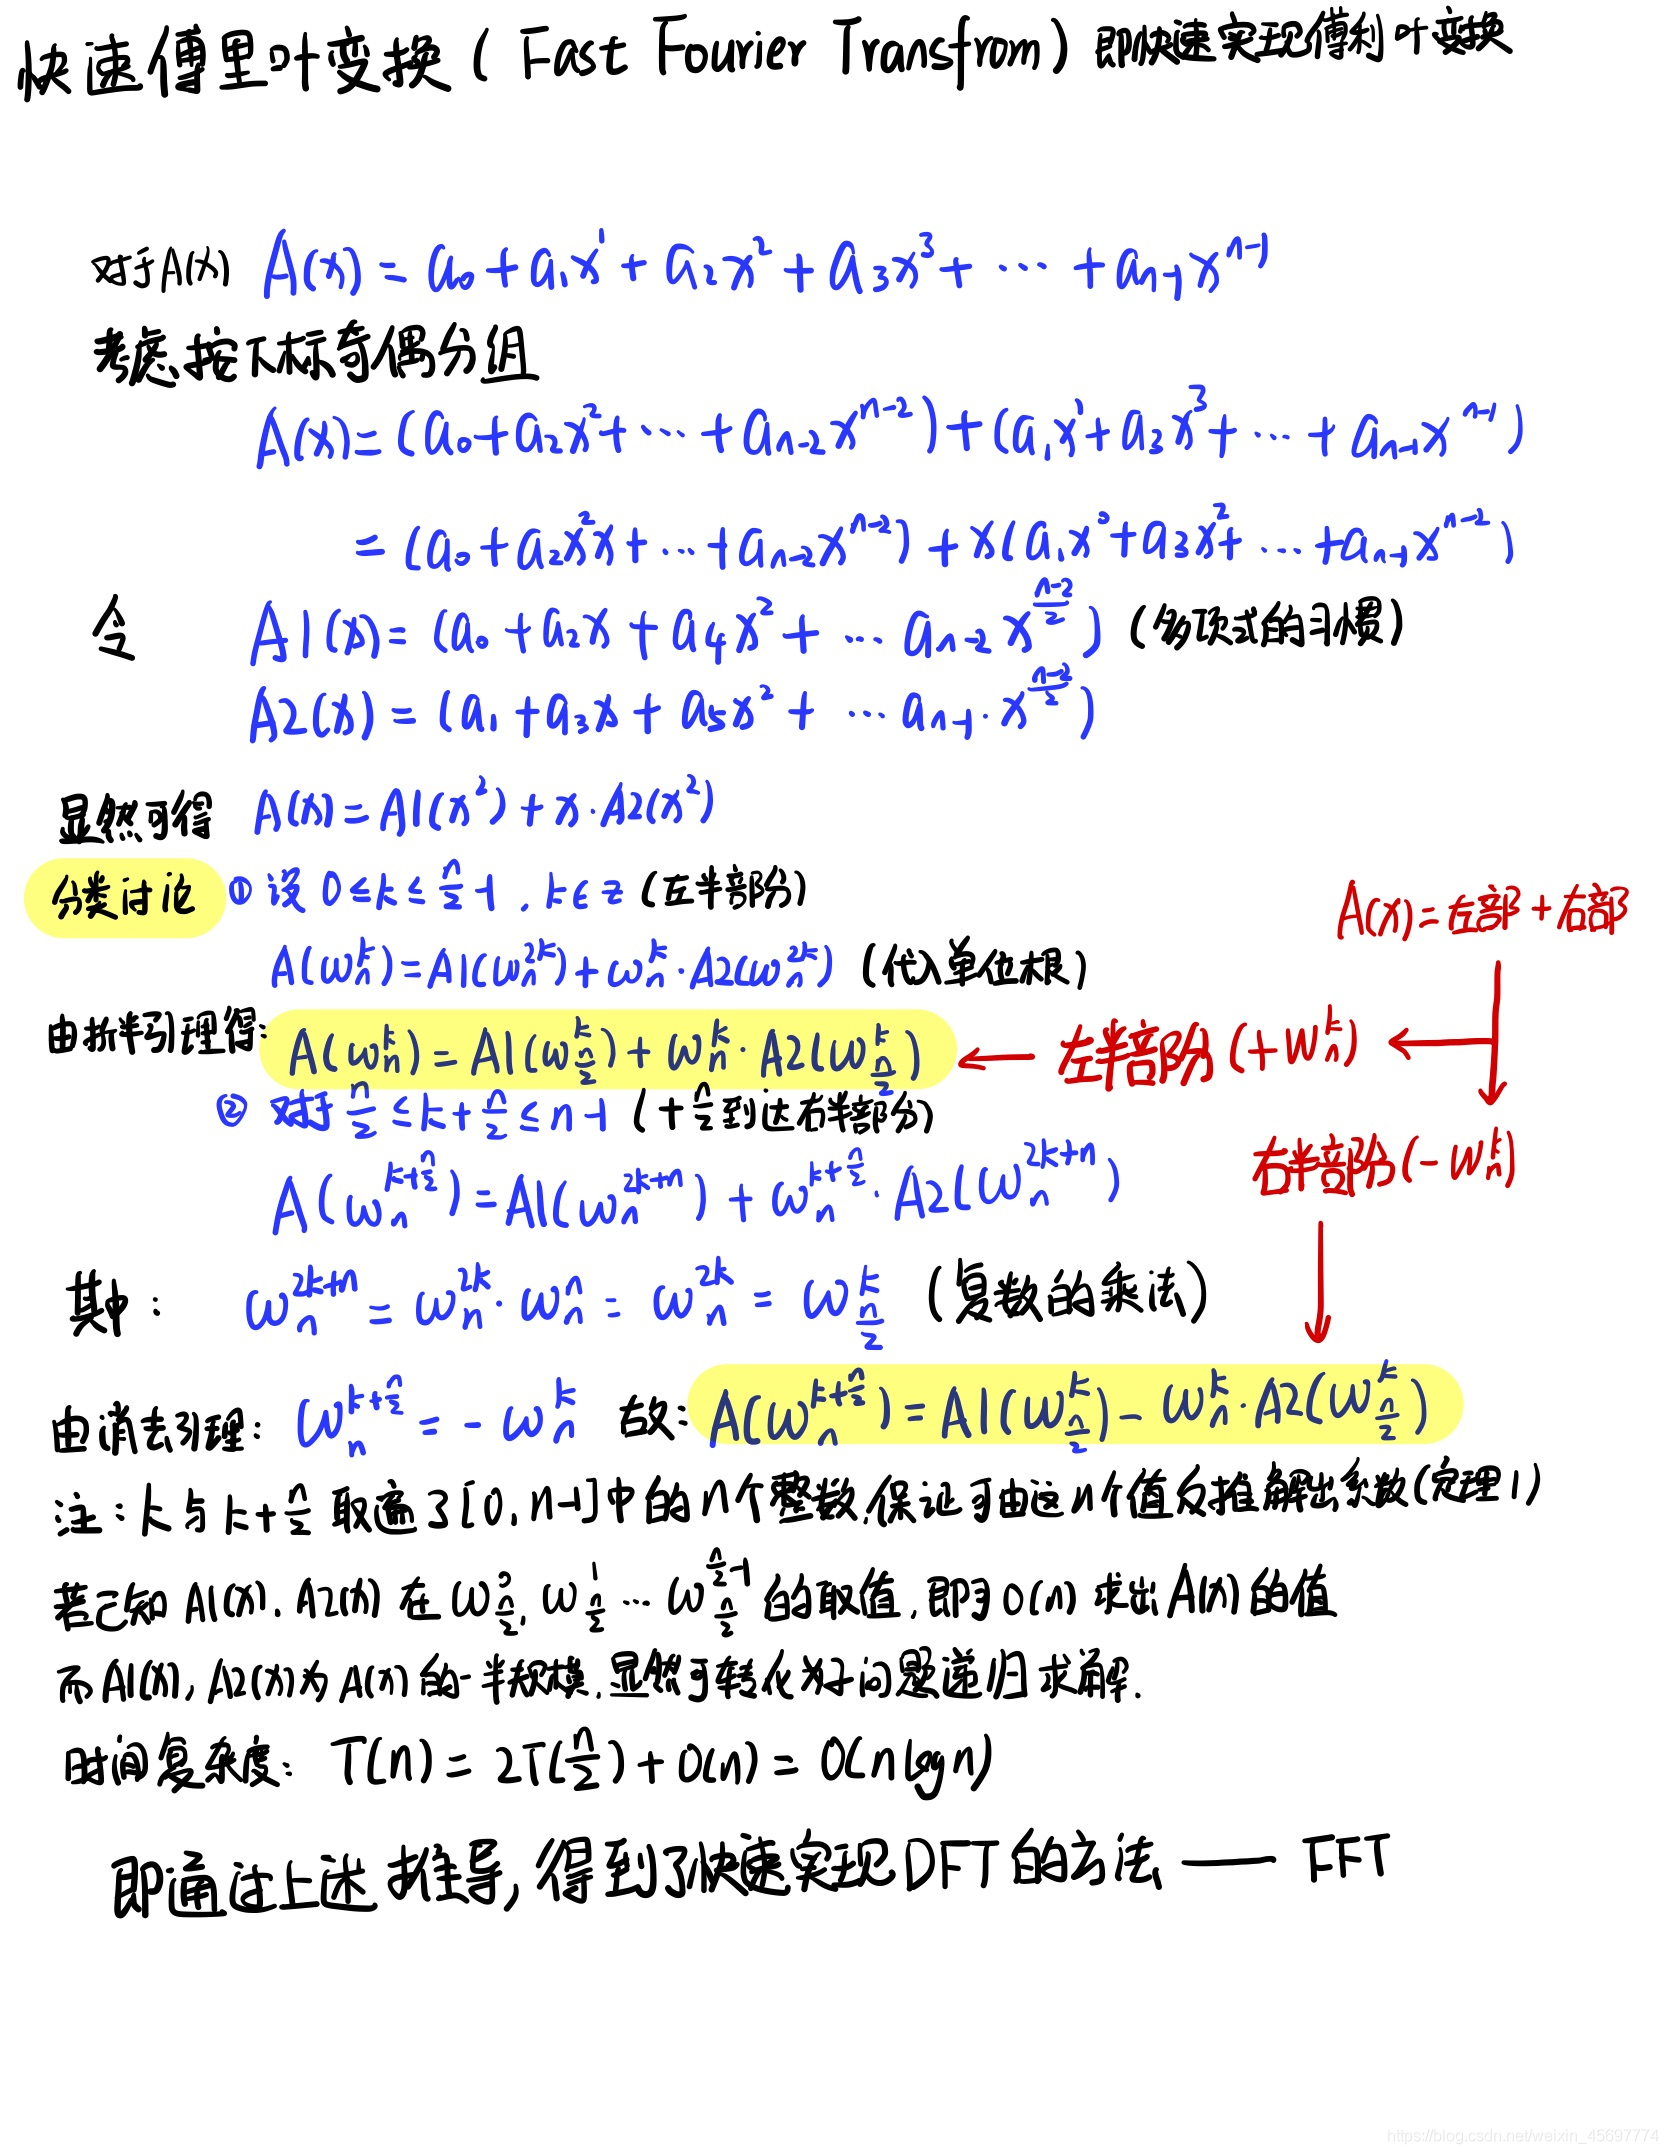 快速傅里叶变换 ( Fast Fourier Transfrom ) 即快速实现傅利叶变换
对于A(x) A(x) = a₀ + a₁x¹ + a₂x² + a₃x³ + ··· + aₙ₋₁xⁿ⁻¹
考虑按下标奇偶分组
A(x) = (a₀+a₂x²+ ··· + aₙ₋₂xⁿ⁻²) + (a₁x¹+a₃x³+ ··· + aₙ₋₁xⁿ⁻¹)
= (a₀+a₂x²x+ ··· +aₙ₋₂xⁿ⁻²) + x(a₁x⁰+a₃x²+ ··· +aₙ₋₁xⁿ⁻²)
令 A1(x) = (a₀ + a₂x + a₄x² + ··· aₙ₋₂ x^((n-2)/2)) (多项式的习惯)
A2(x) = (a₁ + a₃x + a₅x² + ··· aₙ₋₁·x^((n-2)/2))
显然可得 A(x) = A1(x²) + x·A2(x²)
分类讨论 ① 设 0 ≤ k ≤ n/2 -1 , k∈z (左半部分)
A(x) = 左部 + 右部
A(ω_n^k) = A1(ω_n^(2k)) + ω_n^k·A2(ω_n^(2k)) (代入单位根)
由折半引理得: A(ω_n^k) = A1(ω_(n/2)^k) + ω_n^k·A2(ω_(n/2)^k) ← 左半部分 (+W_n^k) ←
② 对于 n/2 ≤ k+n/2 ≤ n-1 (+n/2到达右半部分)
右半部分(-W_n^k)
A(ω_n^(k+n/2)) = A1(ω_n^(2k+n)) + ω_n^(k+n/2)·A2(ω_n^(2k+n))
其中: ω_n^(2k+n) = ω_n^(2k)·ω_n^n = ω_n^(2k) = ω_(n/2)^k (复数的乘法)
由消去引理: ω_n^(k+n/2) = -ω_n^k 故: A(ω_n^(k+n/2)) = A1(ω_(n/2)^k) - ω_n^k·A2(ω_(n/2)^k)
注:k与k+n/2 取遍了[0,n-1]中的n个整数,保证可由这n个值反推解出系数(定理1)
若已知 A1(x), A2(x) 在 ω_(n/2)^0, ω_(n/2)^1 ··· ω_(n/2)^(n/2-1) 的取值,即可O(n) 求出A(x)的值
而A1(x), A2(x)为A(x)的一半规模,显然可转化为子问题递归求解.
时间复杂度: T(n) = 2T(n/2) + O(n) = O(nlogn)
即通过上述推导,得到了快速实现DFT的方法 —— FFT
https://blog.csdn.net/weixin_45697774